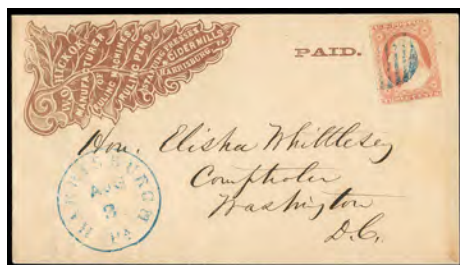 W.O. HICKOK
MANUFACTURER
OF
RULING MACHINES,
RULING PENS,
STANDING PRESSES
& CIDER MILLS
HARRISBURG, PA.
PAID.
Hon. Elisha Whittlesey
Comptroller
Washington
D.C.
HARRISBURGH
AUG
3
PA